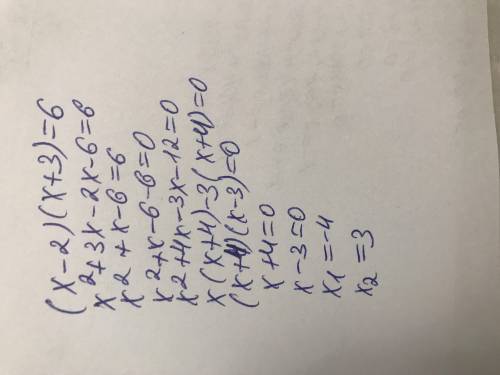 (x-2)(x+3)=6
x²+3x-2x-6=6
x²+x-6=6
x²+x-6-6=0
x²+4x-3x-12=0
x(x+4)-3(x+4)=0
(x+4)(x-3)=0
x+4=0
x-3=0
x1=-4
x2=3